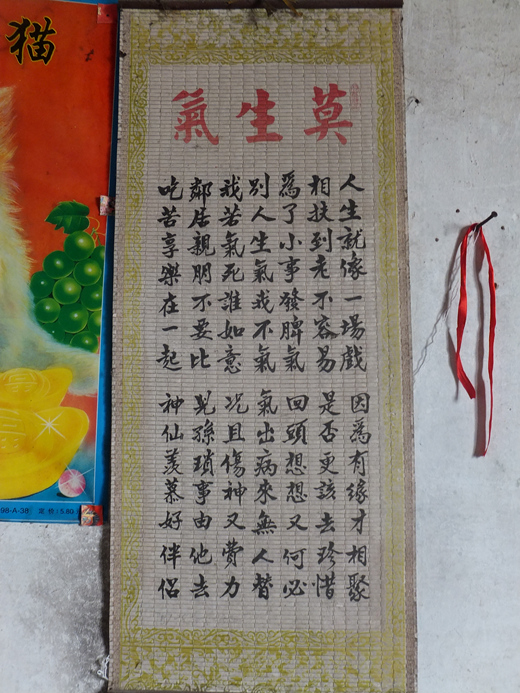 莫生氣
人生就像一場戲
因為有緣才相聚
相扶到老不容易
是否更該去珍惜
為了小事發脾氣
回頭想想又何必
別人生氣我不氣
氣出病來無人替
我若氣死誰如意
况且傷神又費力
鄰居親朋不要比
兒孫瑣事由他去
吃苦享樂在一起
神仙羨慕好伴侶
猫
98-A-38 定价:5.80